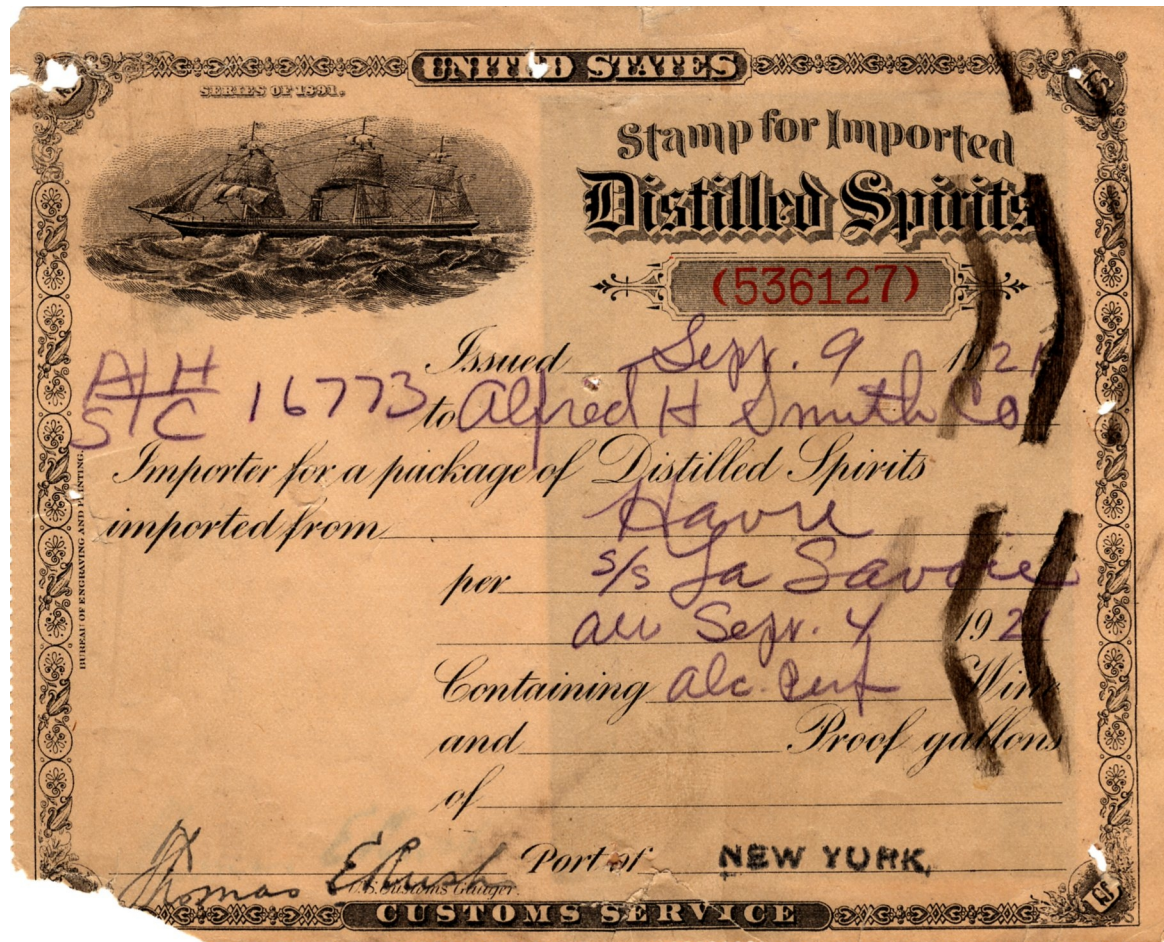 UNITED STATES
SERIES OF 1891.
Stamp for Imported
Distilled Spirits
(536127)
Issued Sept. 9 1921
A H
S C 16773 to Alfred H Smith Co
Importer for a package of Distilled Spirits
imported from Havre
per s/s La Savoie
arr Sept. 4 1921
Containing alc. Perf Wine
and Proof gallons
of
Thomas E Rush Port of NEW YORK,
U.S. Customs Gauger.
CUSTOMS SERVICE
BUREAU OF ENGRAVING AND PRINTING.